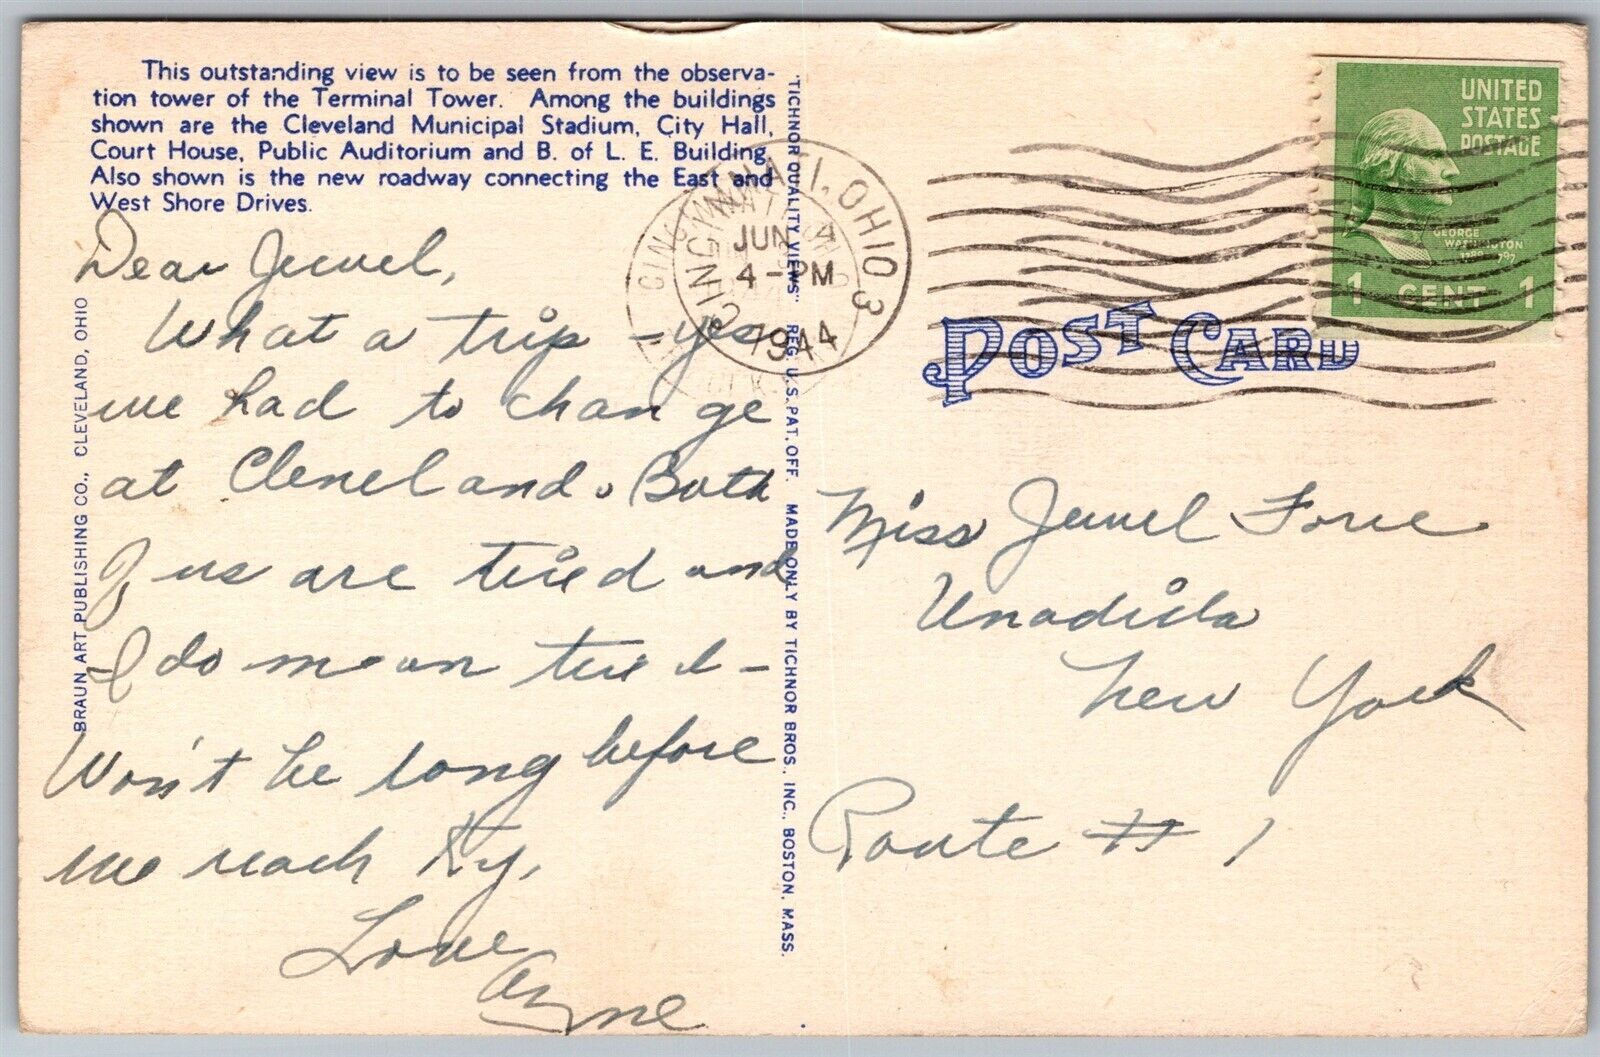 This outstanding view is to be seen from the observa-
tion tower of the Terminal Tower. Among the buildings
shown are the Cleveland Municipal Stadium, City Hall,
Court House, Public Auditorium and B. of L. E. Building.
Also shown is the new roadway connecting the East and
West Shore Drives.
Dear Jewel,
What a trip - yes
we had to change
at Cleveland. Both
of us are tired and
I do mean tired -
Won't be long before
we reach Ky.
Love
BRAUN ART PUBLISHING CO., CLEVELAND, OHIO
"TICHNOR QUALITY VIEWS" REG. U.S. PAT. OFF. MADE ONLY BY TICHNOR BROS., INC., BOSTON, MASS.
CINCINNATI, OHIO 3
JUN 4
4-PM
1944
UNITED
STATES
POSTAGE
GEORGE
WASHINGTON
1789 1797
1 CENT 1
POST CARD
Miss Jewel Force
Unadilla
New York
Route # 1